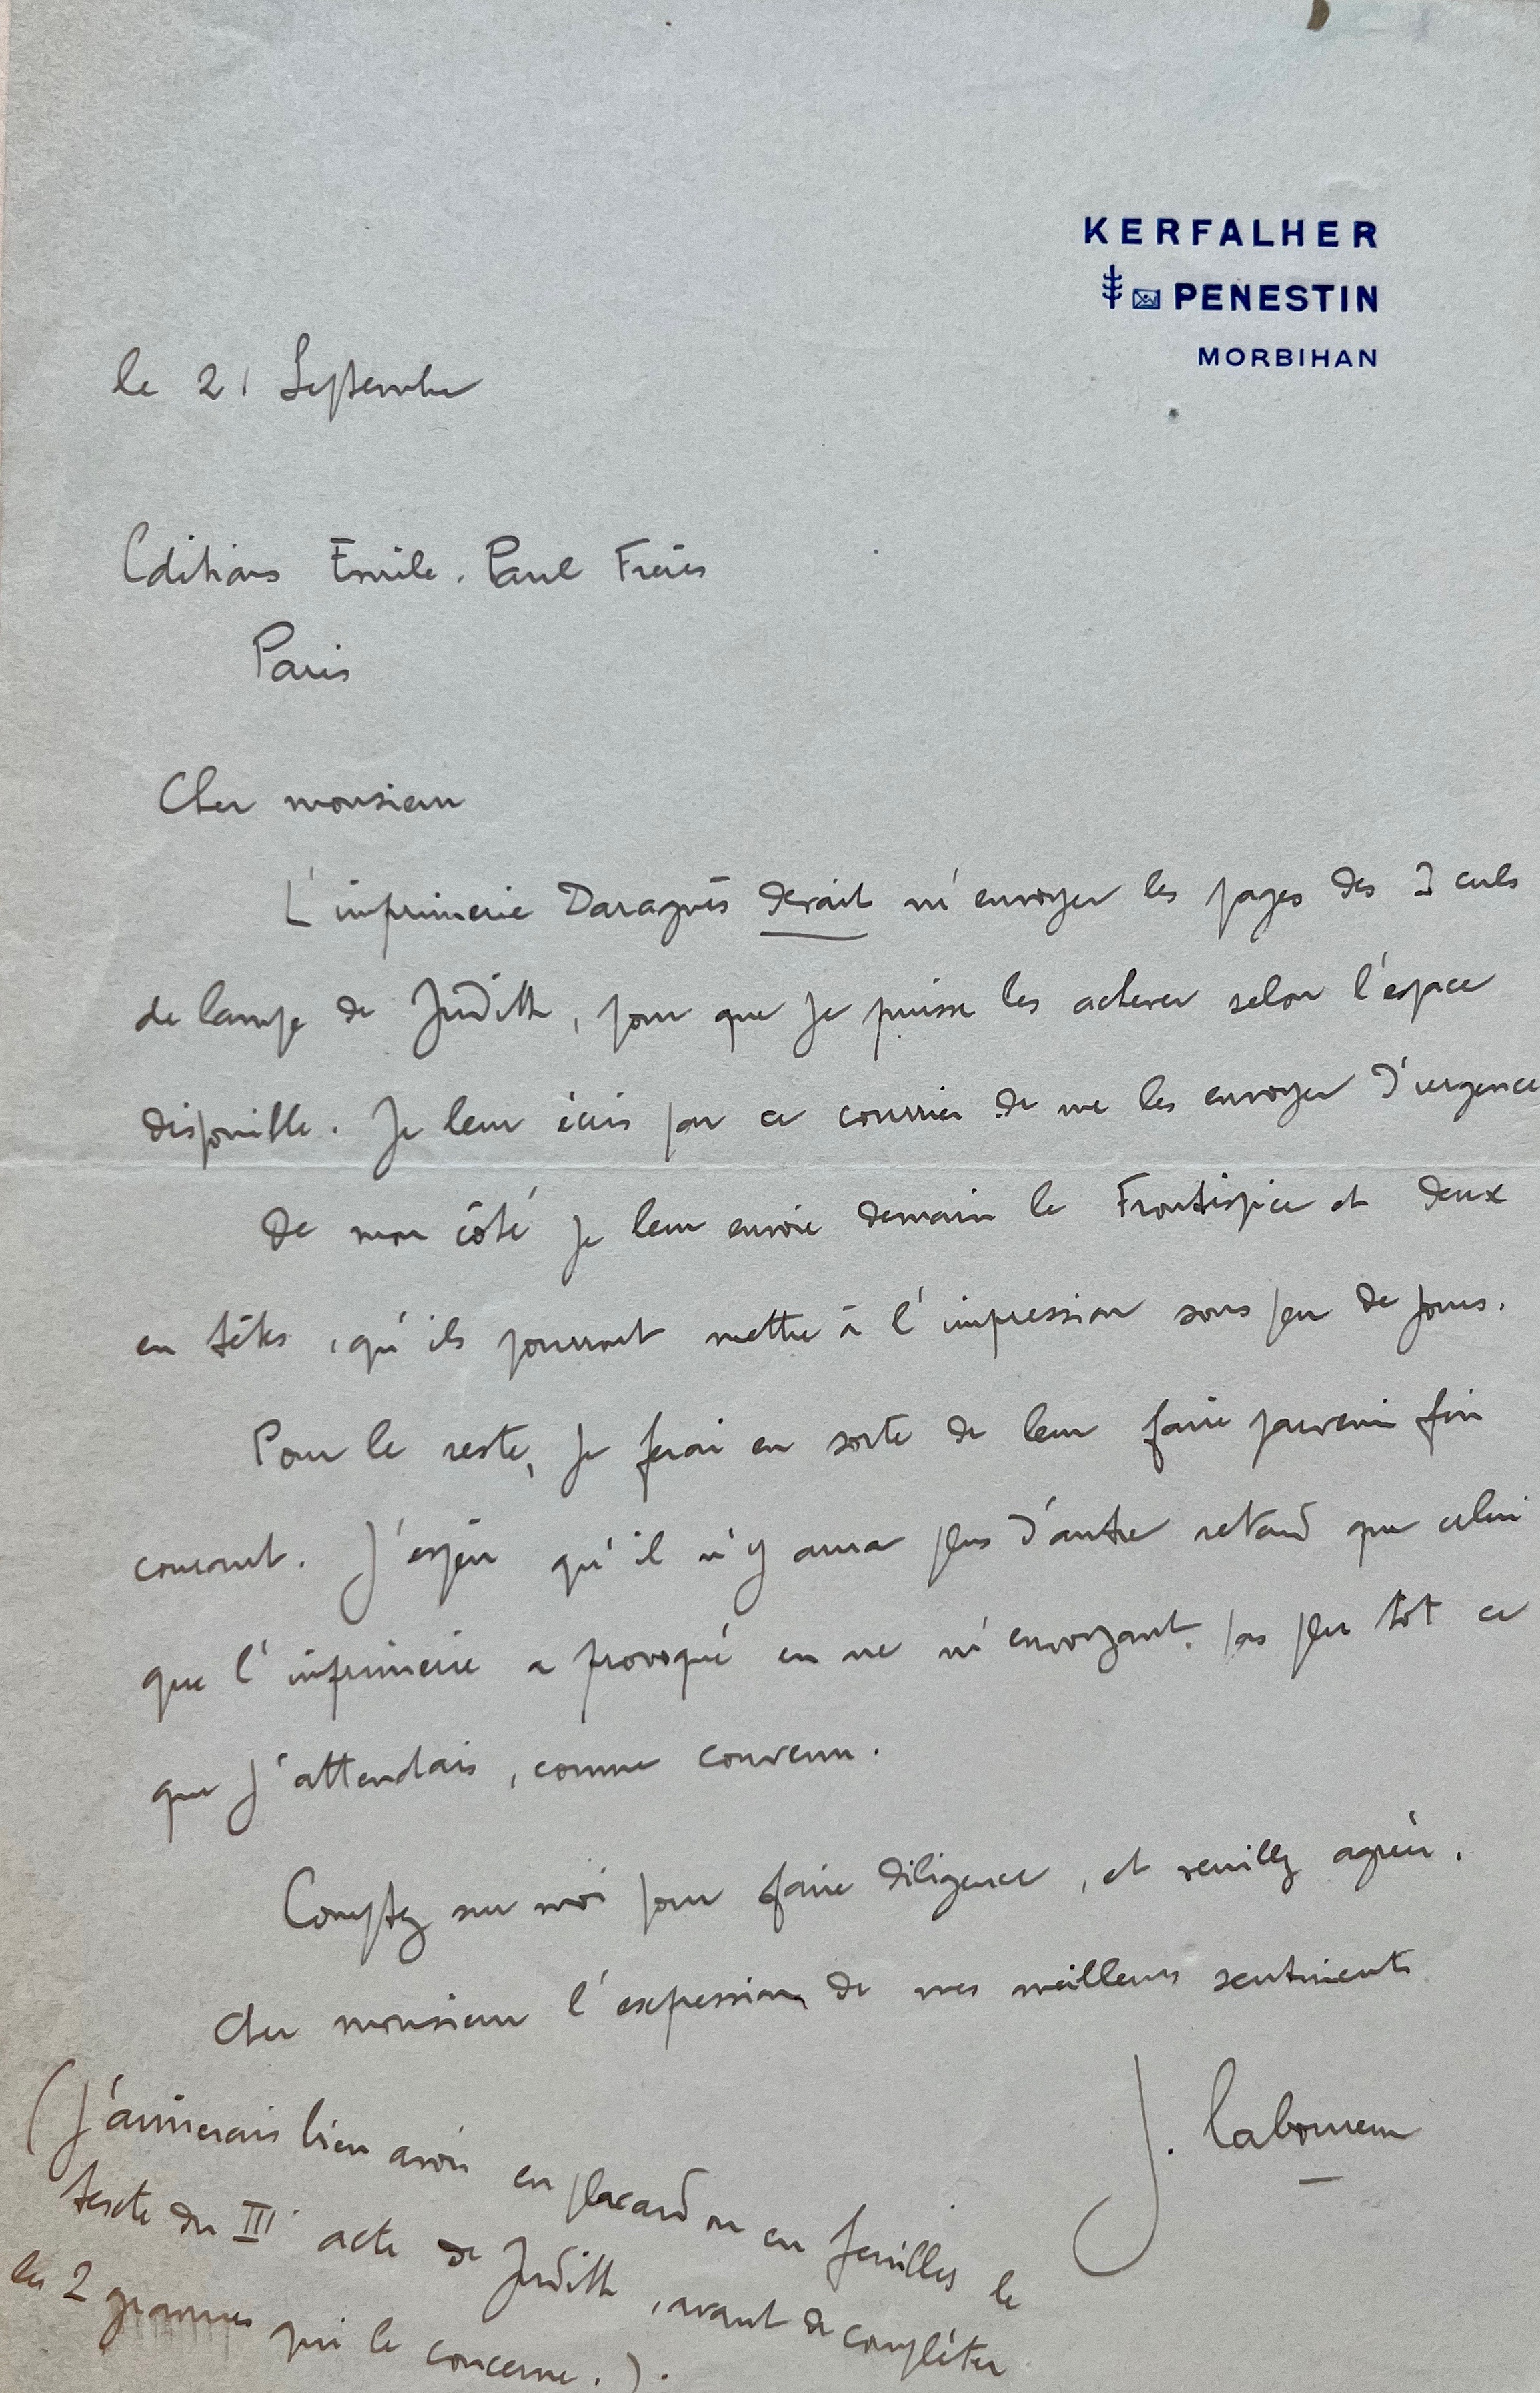 KERFALHER
PENESTIN
MORBIHAN
le 21 Septembre
Editions Emile. Paul Frères
Paris
Cher monsieur
L'imprimerie Daragnès devait m'envoyer les pages des 3 culs
de lampe de Judith, pour que je puisse les achever selon l'espace
disponible. Je leur écris par ce courrier de me les envoyer d'urgence
De mon côté je leur envoie demain le Frontispice et deux
en têtes, qu'ils pourront mettre à l'impression sous peu de jours.
Pour le reste, je ferai en sorte de leur faire parvenir fin
courant. J'espère qu'il n'y aura plus d'autre retard que celui
que l'imprimerie a provoqué en ne m'envoyant pas plus tôt ce
que j'attendais, comme convenu.
Comptez sur moi pour faire diligence, et veuillez agréer,
cher monsieur l'expression de mes meilleurs sentiments
J. Laboureur
(J'aimerais bien avoir en placard ou en feuilles le
texte du III acte de Judith, avant de compléter
les 2 gravures qui le concerne.).